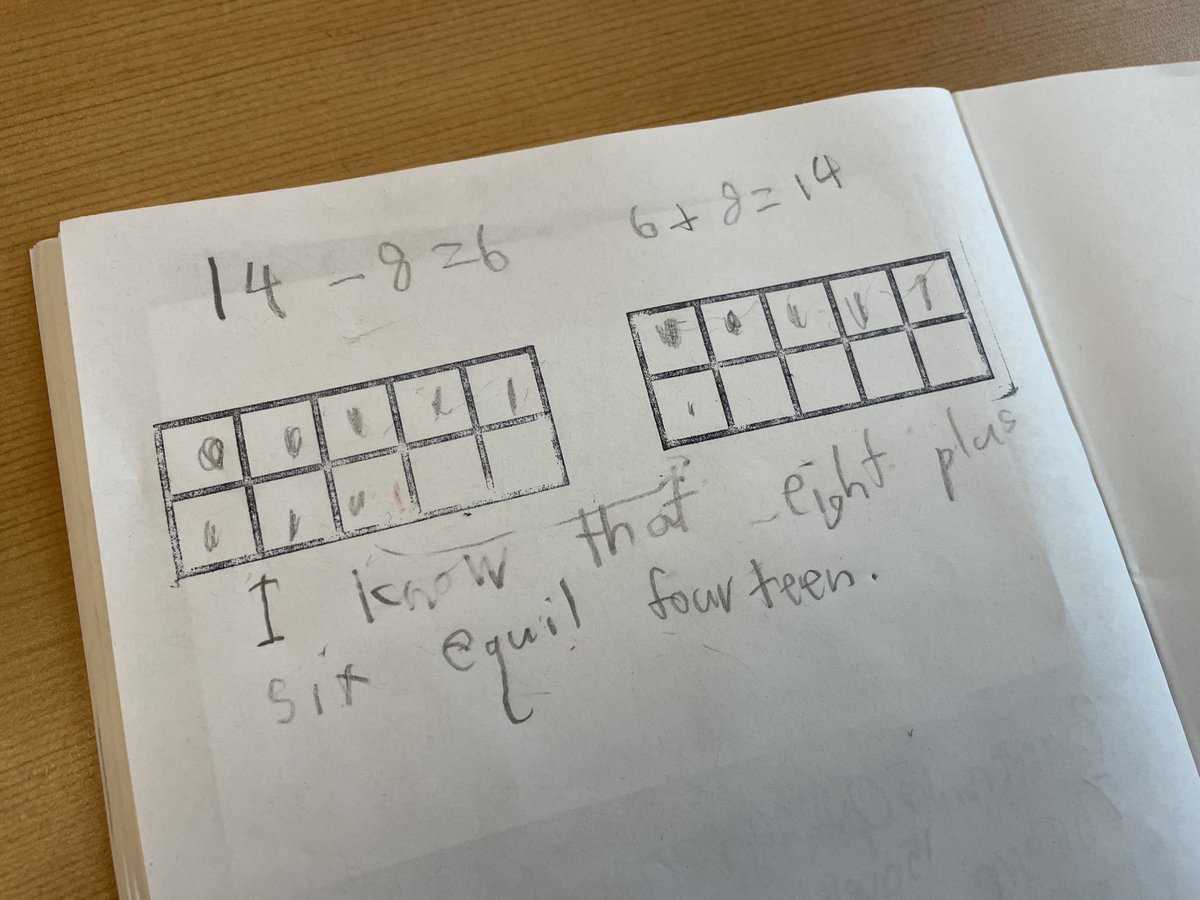 14 - 8 = 6
6 + 8 = 14
I know that eight plus
six equil fourteen.